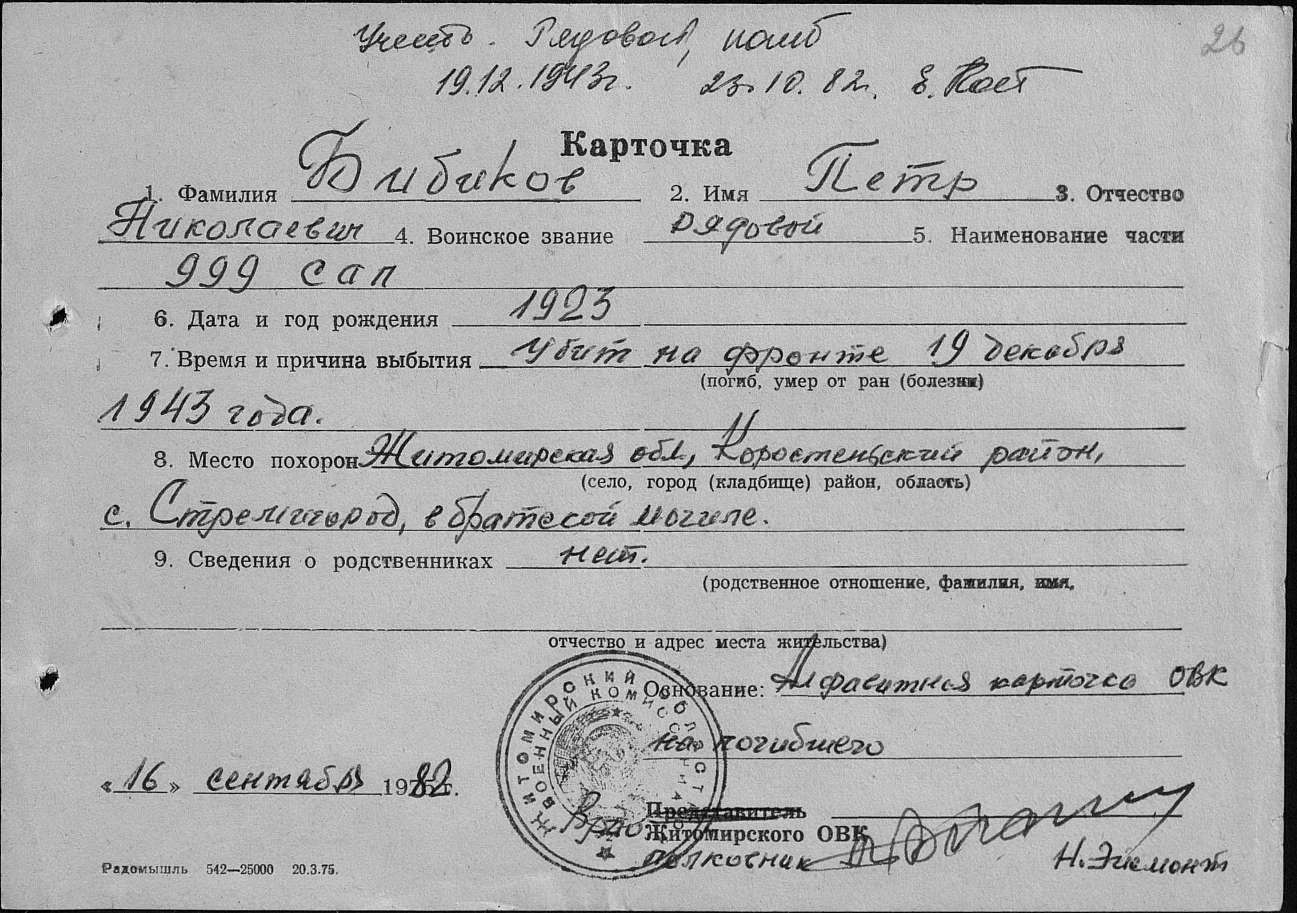 Учесть. Рядовой, погиб
26
19.12.1943г. 23.10.82г.
Карточка
1. Фамилия Бибиков 2. Имя Петр 3. Отчество
Николаевич 4. Воинское звание рядовой 5. Наименование части
999 сап
6. Дата и год рождения 1923
7. Время и причина выбытия Убит на фронте 19 декабря
(погиб, умер от ран (болезни)
1943 года.
8. Место похорон Житомирская обл, Коростеньский район,
(село, город (кладбище) район, область)
с. Стремигород, в братской могиле.
9. Сведения о родственниках нет.
(родственное отношение, фамилия, имя,
отчество и адрес места жительства)
Основание: Алфавитная карточка ОВК
на погибшего
ЖИТОМИРСКИЙ ОБЛАСТНОЙ
ВОЕННЫЙ КОМИССАРИАТ
«16» сентября 1982г.
Врио Представитель
Житомирского ОВК
полковник Н. Эйсмонт
Радомышль 542—25000 20.3.75.